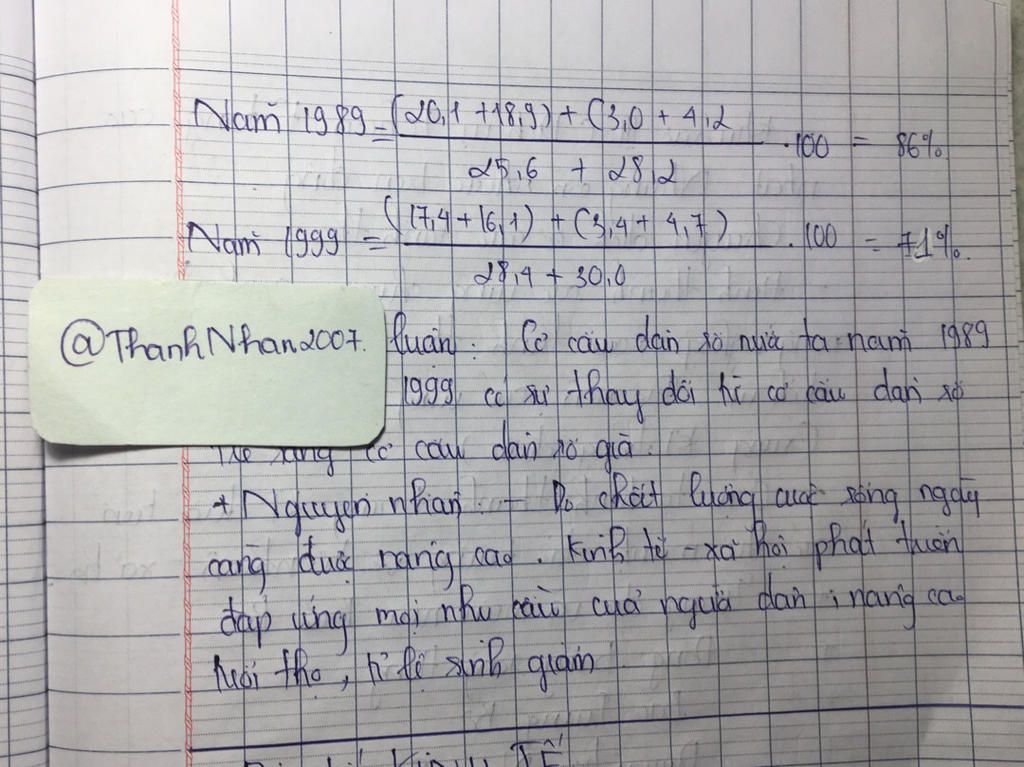 Năm 1989 = (20,1 + 18,9) + (3,0 + 4,2 / 25,6 + 28,2 . 100 = 86%
Năm 1999 = (17,4 + 16,1) + (3,4 + 4,7) / 28,4 + 30,0 . 100 = 71%.
@ThanhNhan2007. luận: Cơ cấu dân số nước ta năm 1989
1999 có sự thay đổi từ cơ cấu dân số
sang cơ cấu dân số già.
+ Nguyên nhân: - Do chất lượng cuộc sống ngày
càng được nâng cao. Kinh tế - xã hội phát triển
đáp ứng mọi nhu cầu của người dân, nâng cao
tuổi thọ, tỉ lệ sinh giảm